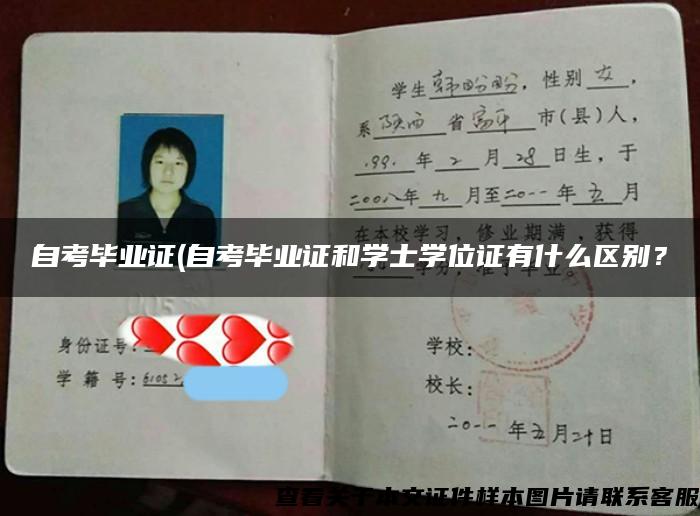 学生韩盼盼，性别女，
系陕西省富平市(县)人，
1991年2月28日生，于
二00八年九月至二0一一年五月
在本校学习，修业期满，获得
学分，准予毕业。
自考毕业证(自考毕业证和学士学位证有什么区别？
身份证号:
学籍号:61052
学校:
校长:
二0一一年五月二十日
查看关于本文证件样本图片请联系客服